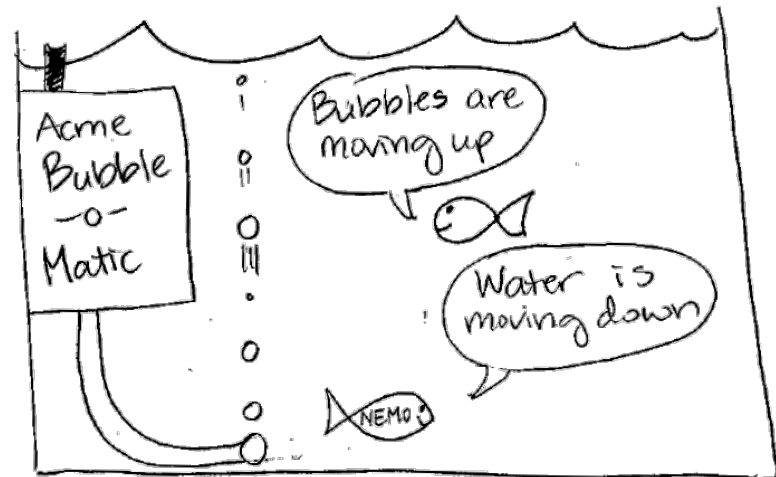 Acme
Bubble
-o-
Matic
Bubbles are
moving up
Water is
moving down
NEMO